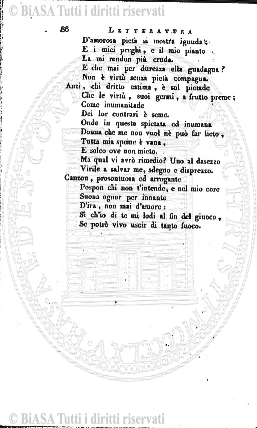 © BiASA Tutti i diritti riservati
86 LETTERATURA
D'amorosa pietà si mostra ignuda:
E i miei preghi, e il mio pianto
La mi rendon più cruda.
E che mai per durezza ella guadagna?
Non è virtù senza pietà compagna.
Anti, chi dritto estima, è sol pietade
Che le virtù, suoi germi, a frutto preme;
Come inumanitade
Dei lor contrari è seme.
Onde in questa spietata ed inumana
Donna che me non vuol nè può far lieto,
Tutta mia speme è vana,
E solco ove non mieto.
Ma qual vi avrò rimedio? Uno al dasezzo
Virile a salvar me, sdegno e disprezzo.
Canzon, prosontuosa ed arrogante
Pospon chi non t'intende, e nel mio core
Suona ognor per innante
D'ira, non mai d'amore:
Sì ch'io di te mi lodi al fin del giuoco,
Se potrò vivo uscir di tanto fuoco.
© BiASA Tutti i diritti riservati